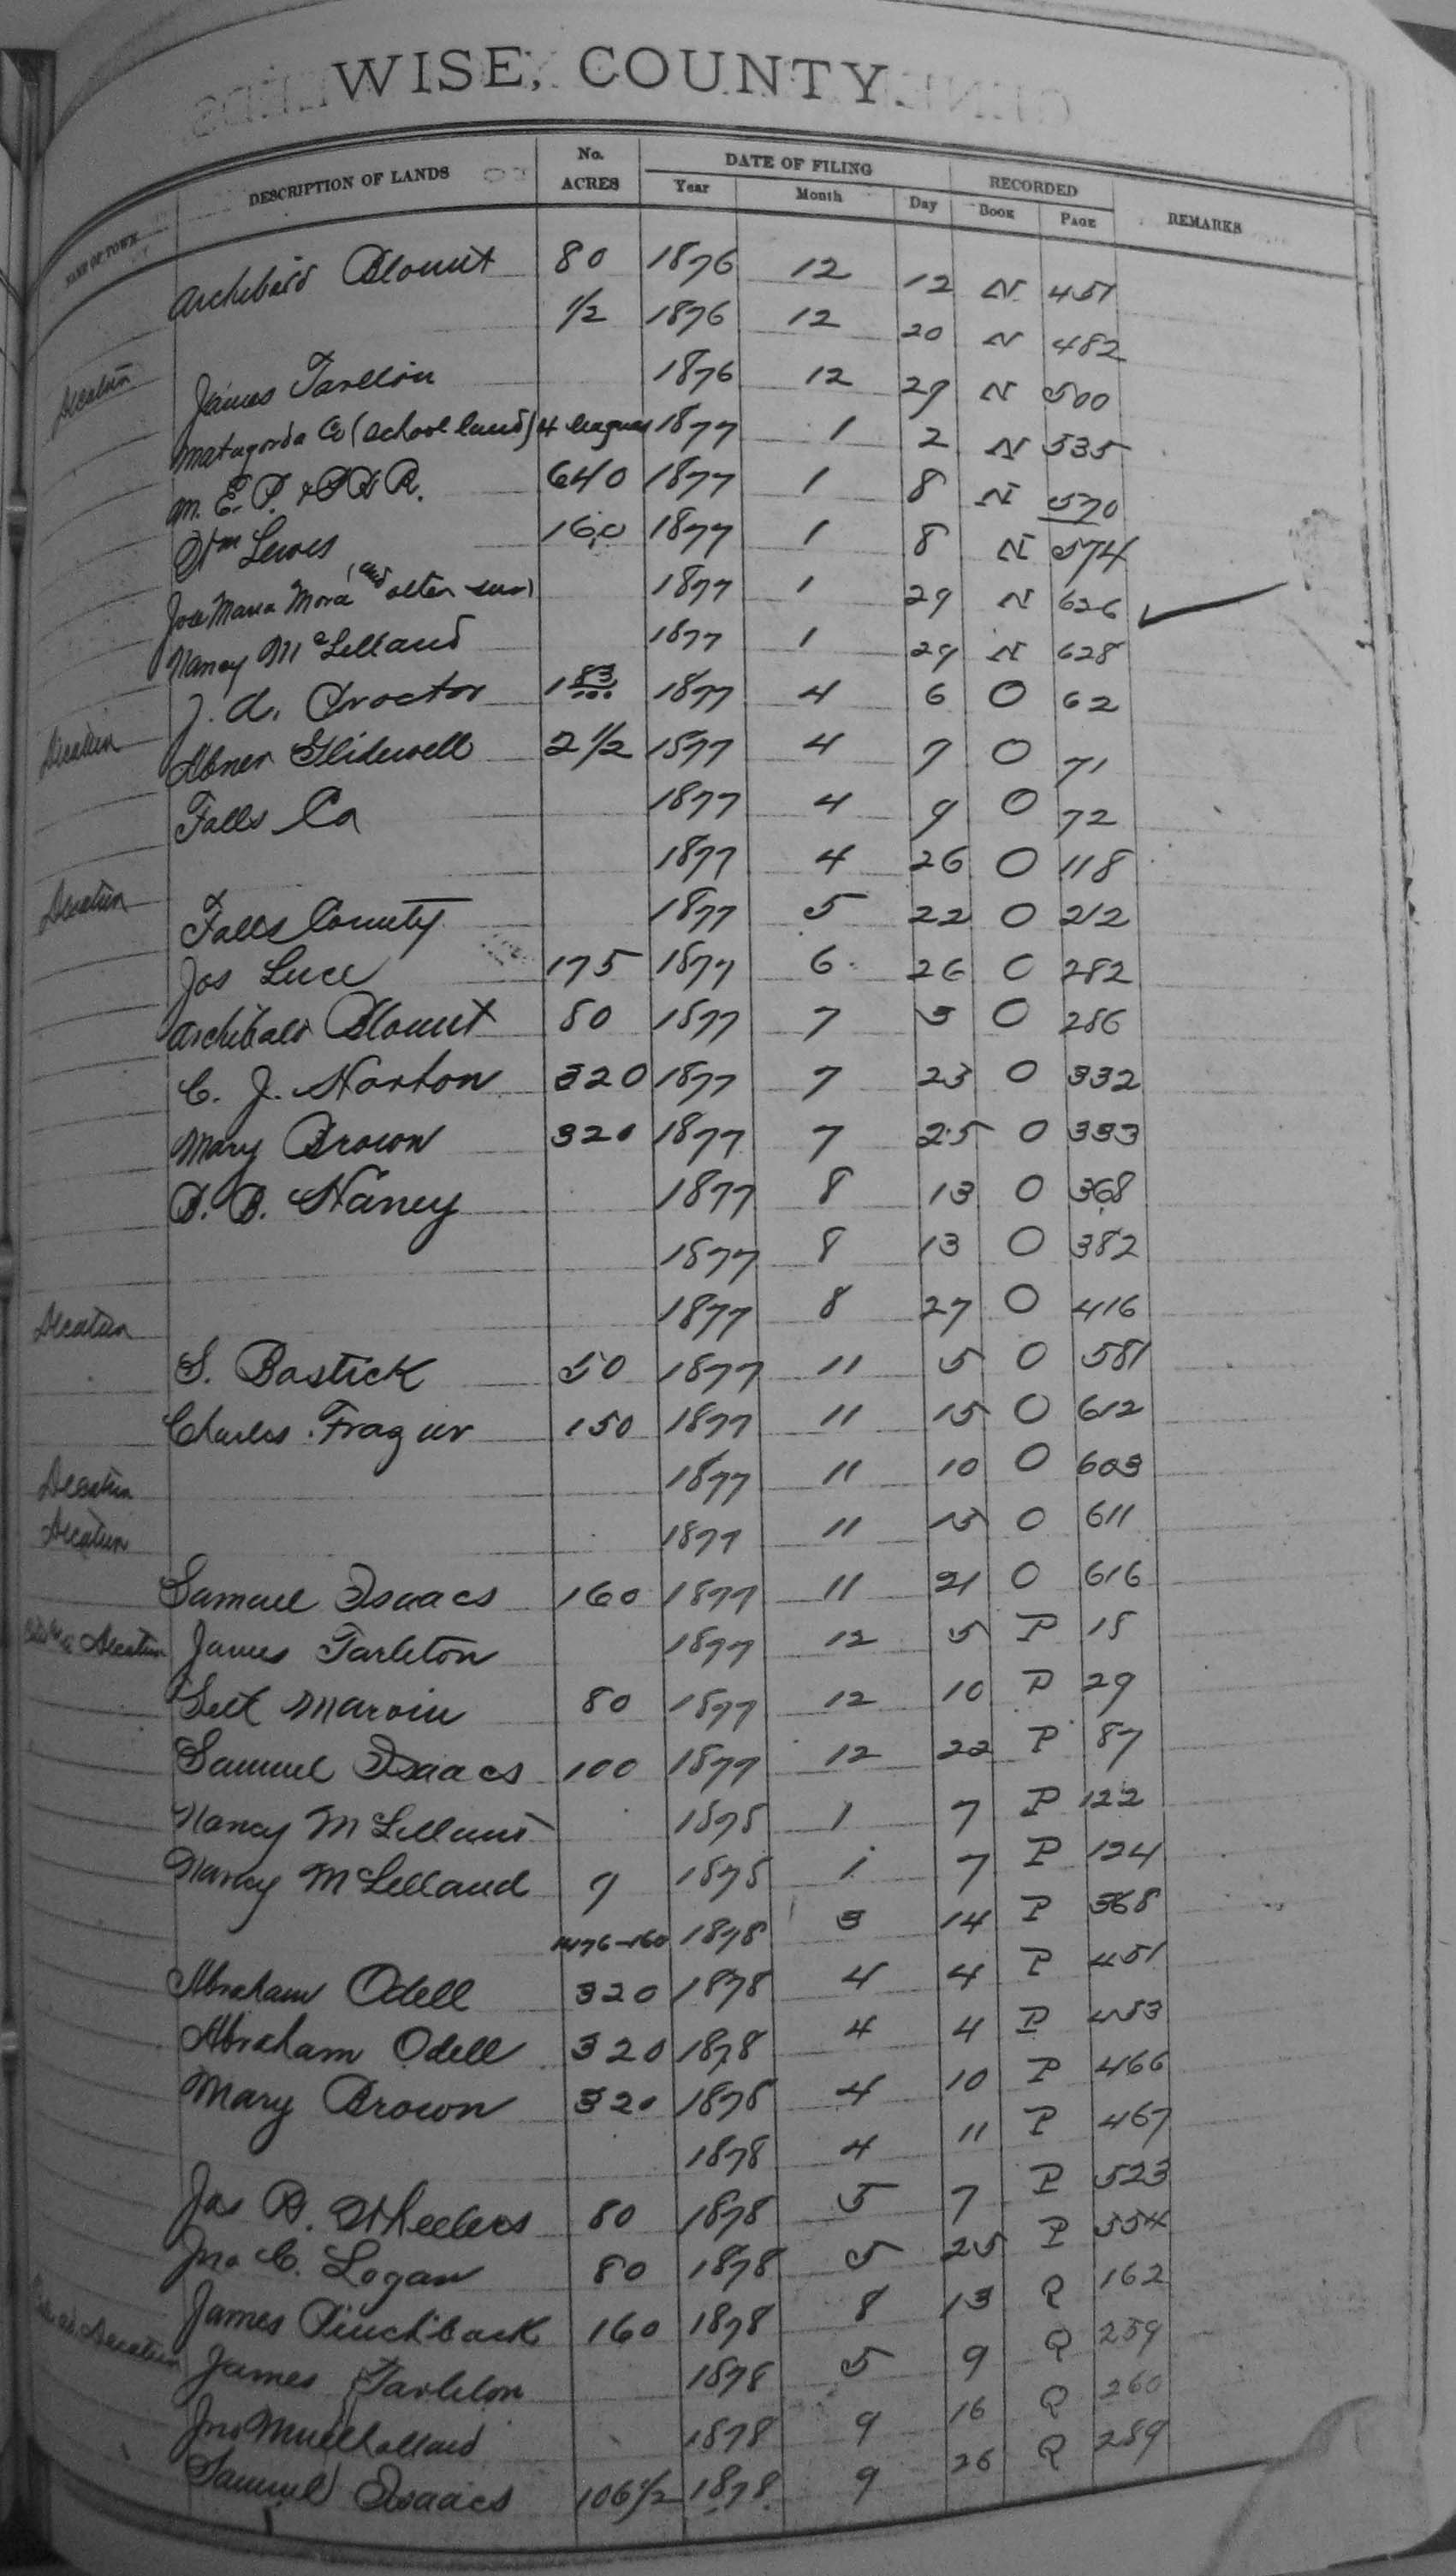 WISE, COUNTY.
NAME OF TOWN DESCRIPTION OF LANDS No. ACRES DATE OF FILING Year Month Day RECORDED BOOK PAGE REMARKS
Archibald Blount 80 1876 12 12 N 451
1/2 1876 12 20 N 482
Decatur James Tarlton 1876 12 29 N 500
Matagorda Co (School land) 4 leagues 1877 1 2 N 535
M. E. P. & P R R. 640 1877 1 8 N 570
Wm Lewis 160 1877 1 8 N 574
Jose Maria Mora (and other sur) 1877 1 29 N 626
Nancy McLelland 1877 1 29 N 628
J. A. Proctor 1 83/100 1877 4 6 O 62
Decatur Abner Glidewell 2 1/2 1877 4 7 O 71
Falls Co 1877 4 9 O 72
1877 4 26 O 118
Decatur Falls County 1877 5 22 O 212
Jos Luce 175 1877 6 26 O 282
Archibald Blount 80 1877 7 3 O 286
C. J. Norton 320 1877 7 23 O 332
Mary Brown 320 1877 7 25 O 333
B. B. Haney 1877 8 13 O 368
1877 8 13 O 382
Decatur 1877 8 27 O 416
S. Bostick 50 1877 11 5 O 581
Charles Fragur 150 1877 11 15 O 612
Decatur 1877 11 10 O 603
Decatur 1877 11 15 O 611
Samuel Isaacs 160 1877 11 21 O 616
Decatur James Tarleton 1877 12 5 P 15
Marvin 80 1877 12 10 P 29
Samuel Isaacs 100 1877 12 22 P 87
Nancy McLelland 1878 1 7 P 122
Nancy McLelland 9 1878 1 7 P 124
1476-160 1878 3 14 P 368
Abraham Odell 320 1878 4 4 P 451
Abraham Odell 320 1878 4 4 P 453
Mary Brown 320 1878 4 10 P 466
1878 4 11 P 467
Jas B. Wheelers 80 1878 5 7 P 523
Jno C. Logan 80 1878 5 25 P 554
James Pinchback 160 1878 8 13 Q 162
Decatur James Tarleton 1878 5 9 Q 259
Jno Mullholland 1878 9 16 Q 260
Samuel Isaacs 106 1/2 1878 9 26 Q 289